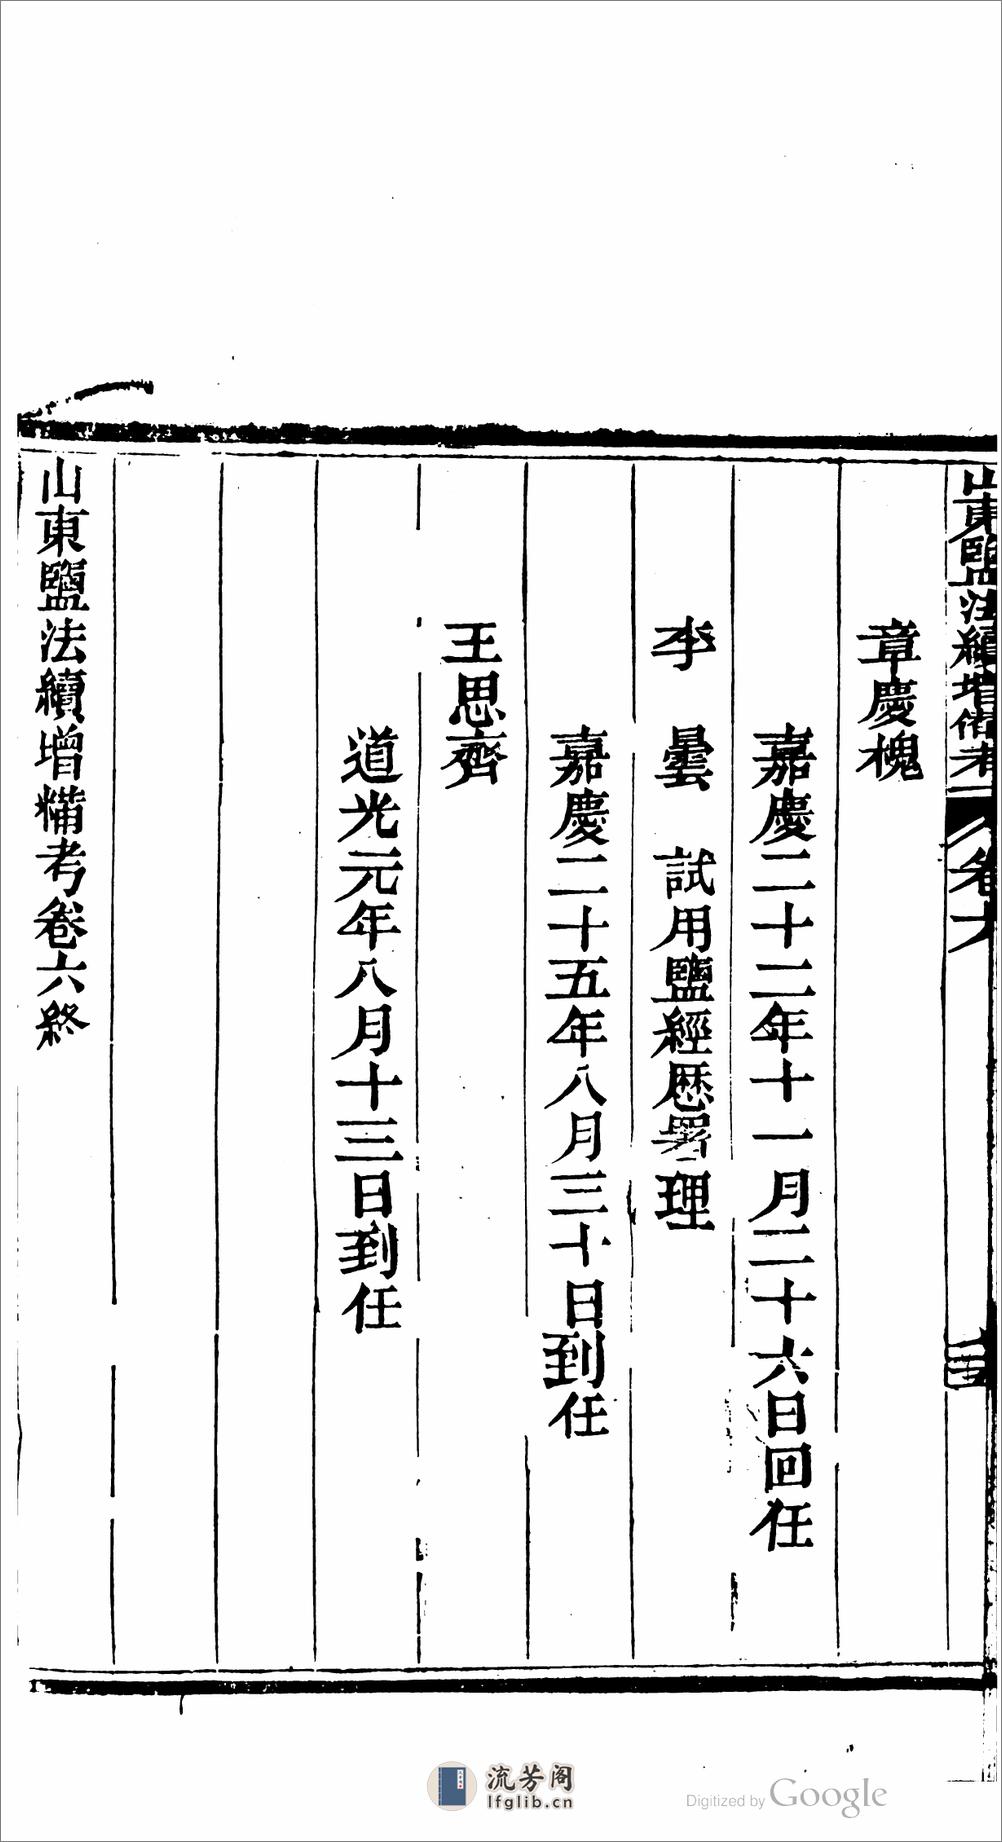 山東鹽法續增備考 卷六
章慶槐
嘉慶二十二年十一月二十六日回任
李曇 試用鹽經歷署理
嘉慶二十五年八月三十日到任
王思齊
道光元年八月十三日到任
山東鹽法續增備考卷六終
流芳阁
lfglib.cn
Digitized by Google